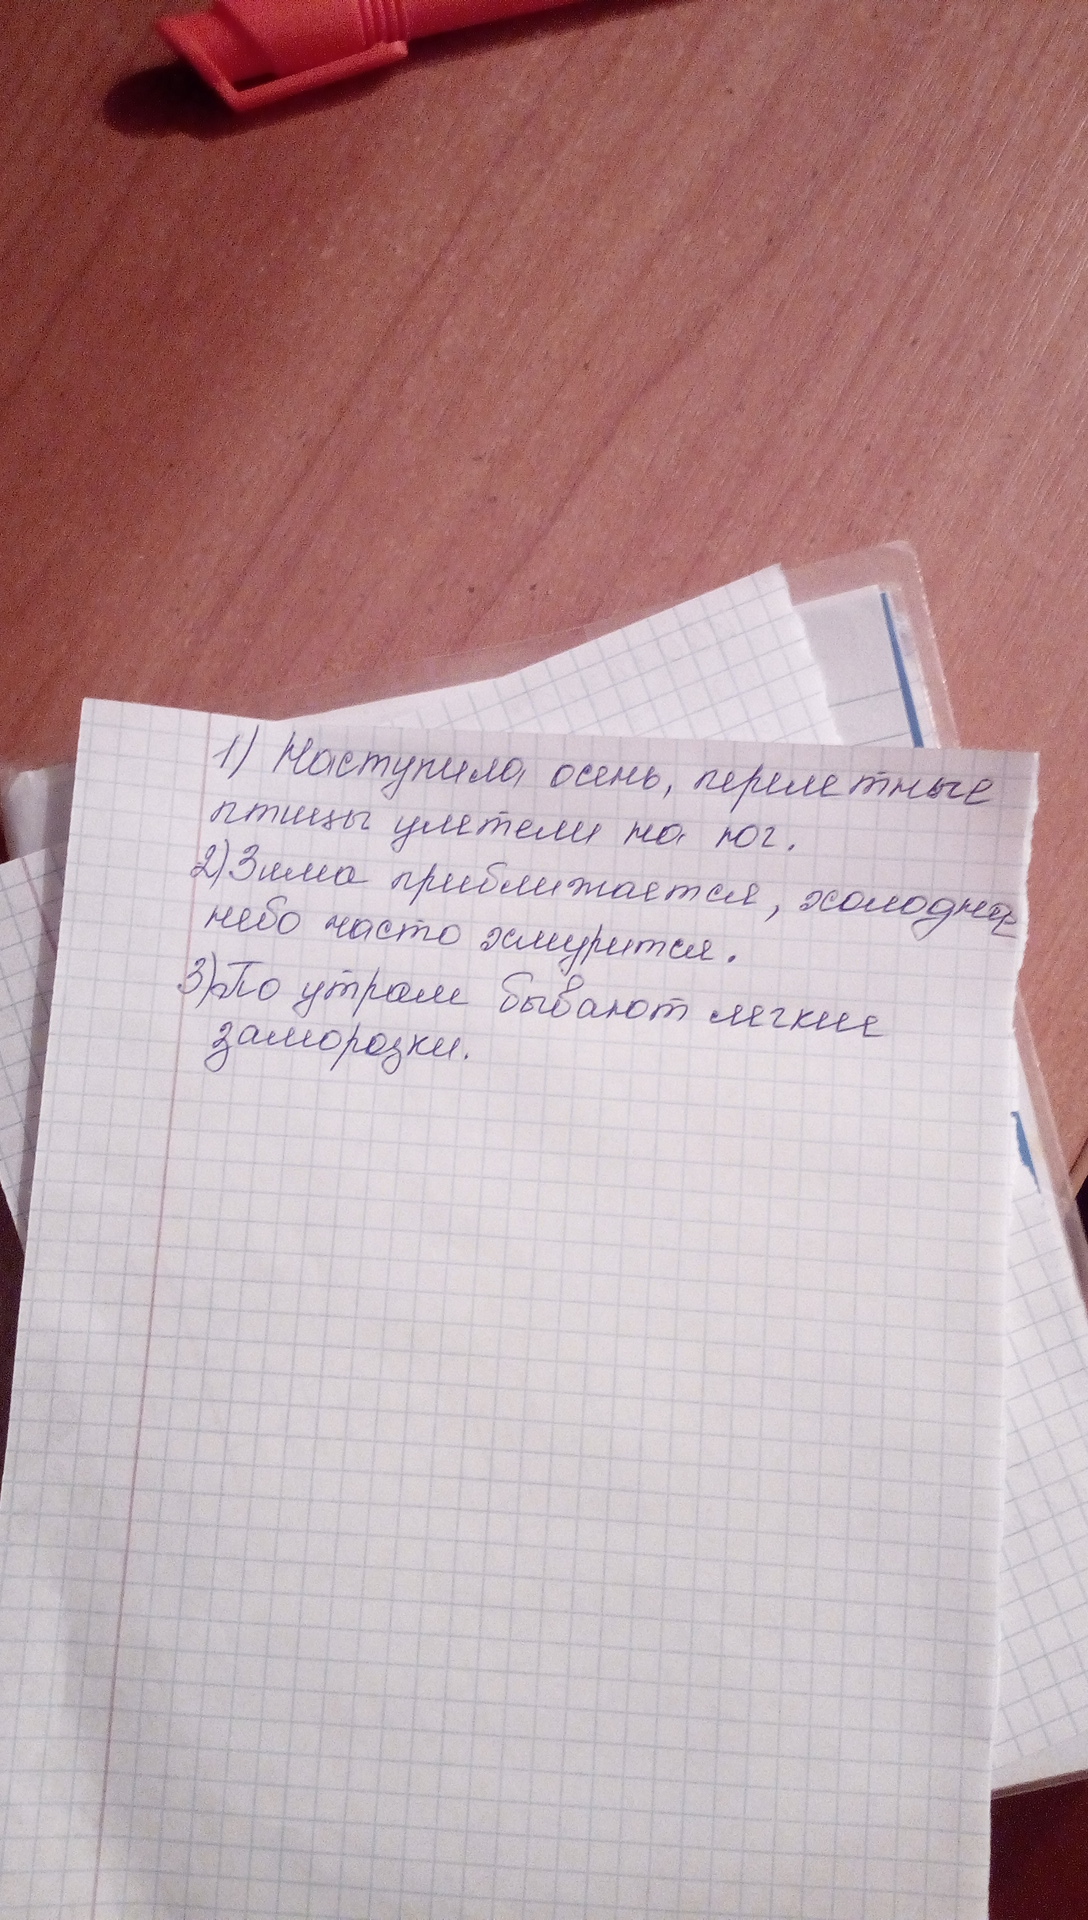 1) Наступила осень, перелетные
птицы улетели на юг.
2) Зима приближается, холодное
небо часто хмурится.
3) По утрам бывают легкие
заморозки.